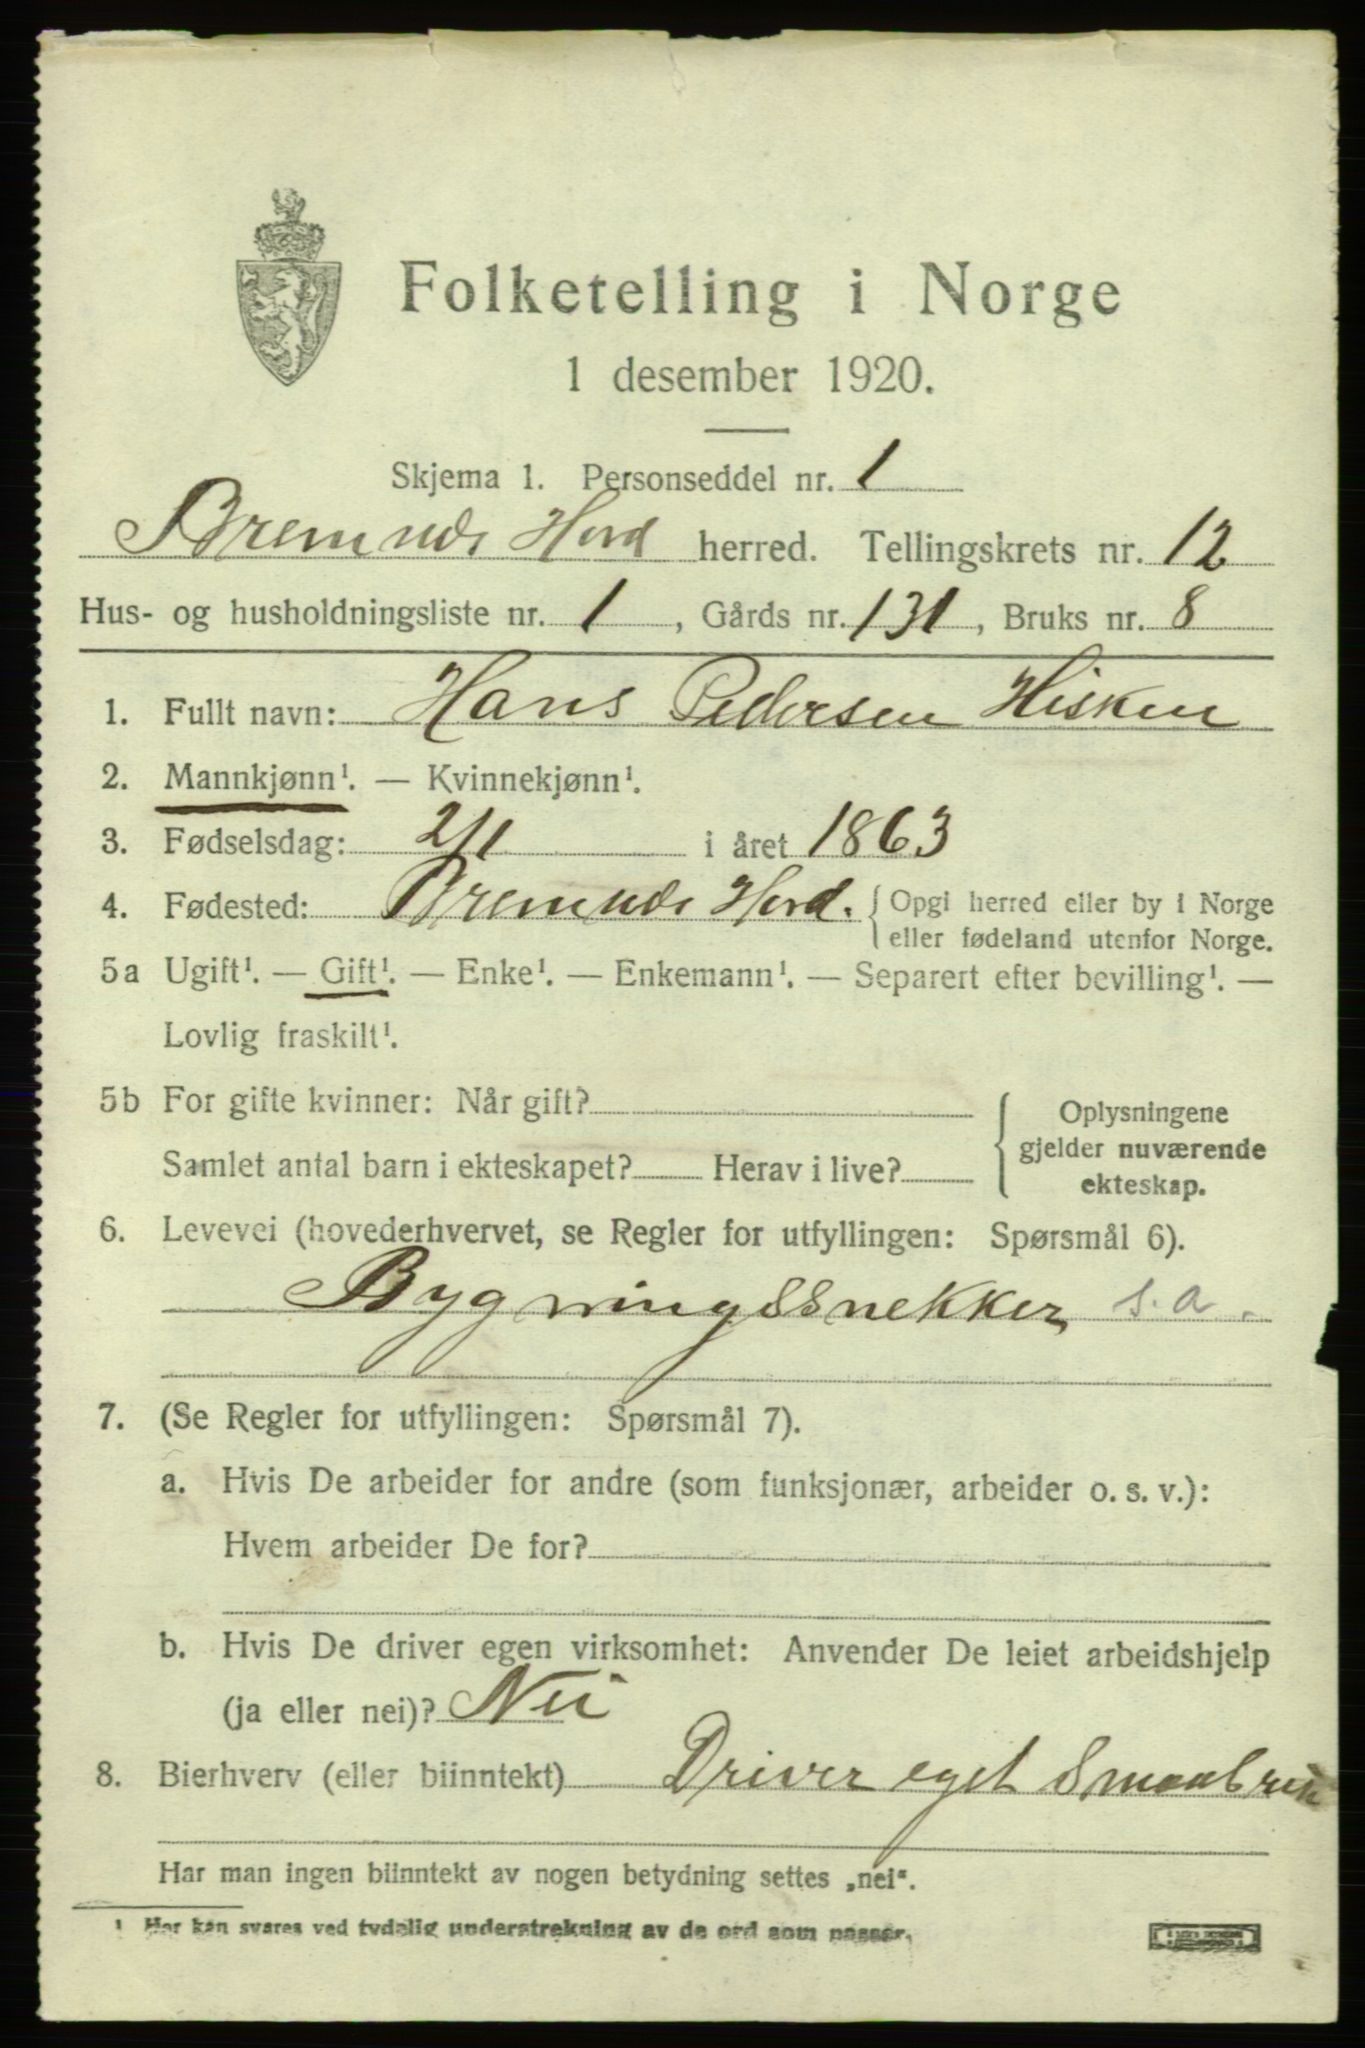 Folketelling i Norge
1 desember 1920.
Skjema 1. Personseddel nr. 1
Herd herred. Tellingskrets nr. 12
Hus- og husholdningsliste nr. 1, Gårds nr. 131, Bruks nr. 8
1. Fullt navn: Hans Pedersen Hisken
2. Mannkjønn¹. — Kvinnekjønn¹.
3. Fødselsdag: 2/1 i året 1863
4. Fødested: Herd. { Opgi herred eller by i Norge
eller fødeland utenfor Norge.
5a Ugift¹. — Gift¹. — Enke¹. — Enkemann¹. — Separert efter bevilling¹. —
Lovlig fraskilt¹.
5b For gifte kvinner: Når gift?
Samlet antal barn i ekteskapet? Herav i live?
Oplysningene
gjelder nuværende
ekteskap.
6. Levevei (hovederhvervet, se Regler for utfyllingen: Spørsmål 6).
Bygningssnekker s. a.
7. (Se Regler for utfyllingen: Spørsmål 7).
a. Hvis De arbeider for andre (som funksjonær, arbeider o. s. v.):
Hvem arbeider De for?
b. Hvis De driver egen virksomhet: Anvender De leiet arbeidshjelp
(ja eller nei)? Nei
8. Bierhverv (eller biinntekt) Driver eget Smaabruk
Har man ingen biinntekt av nogen betydning settes „nei“.
¹ Her kan svares ved tydelig understrekning av de ord som passer.